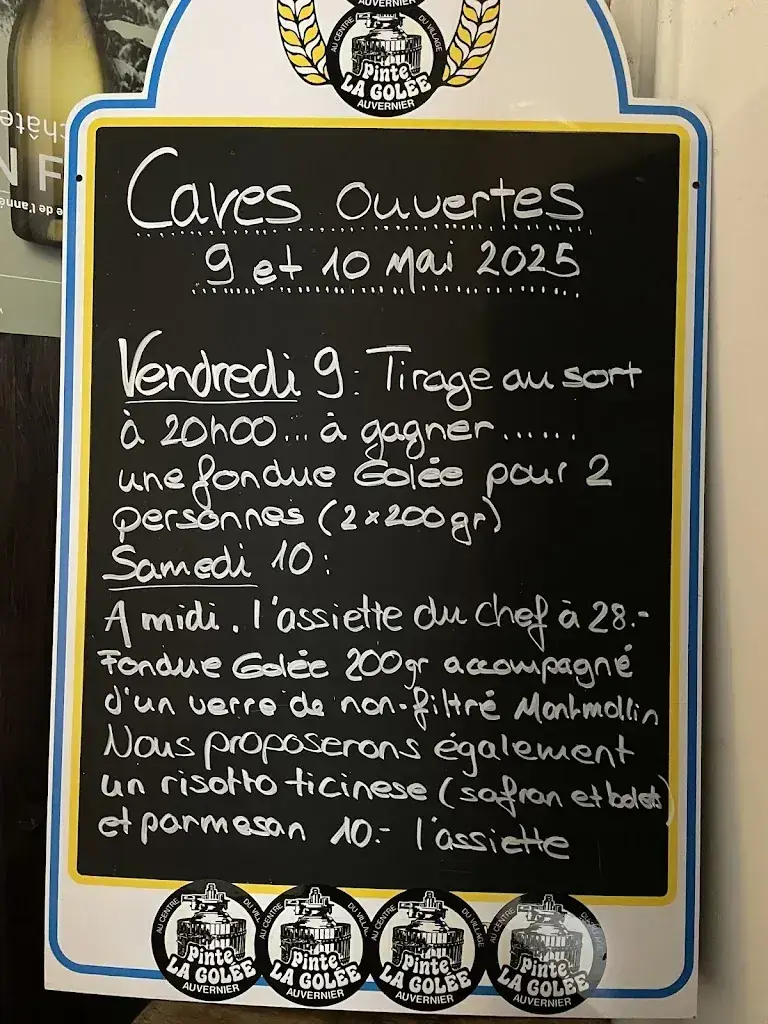 AU CENTRE DU VILLAGE
Pinte
LA GOLÉE
AUVERNIER
Caves ouvertes
9 et 10 Mai 2025
Vendredi 9: Tirage au sort
à 20h00... à gagner......
une fondue Golée pour 2
personnes (2x200gr)
Samedi 10:
A midi, l'assiette du chef à 28.-
Fondue Golée 200gr accompagné
d'un verre de non-filtré Montmollin
Nous proposerons également
un risotto ticinese (safran et bolets)
et parmesan 10.- l'assiette
AU CENTRE DU VILLAGE
Pinte
LA GOLÉE
AUVERNIER
AU CENTRE DU VILLAGE
Pinte
LA GOLÉE
AUVERNIER
AU CENTRE DU VILLAGE
Pinte
LA GOLÉE
AUVERNIER
AU CENTRE DU VILLAGE
Pinte
LA GOLÉE
AUVERNIER